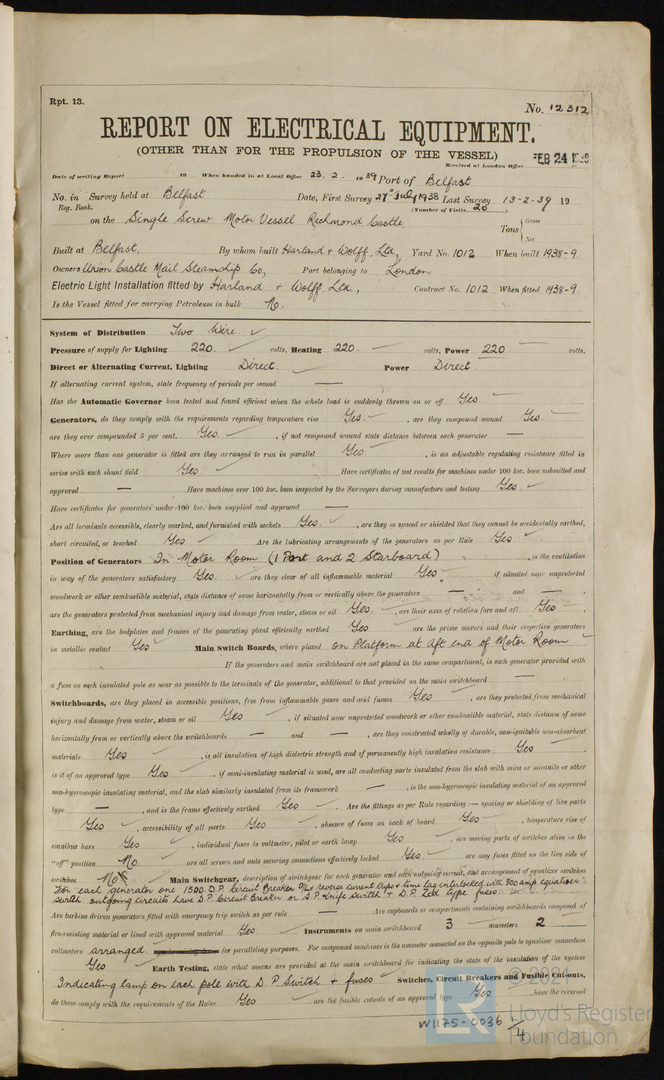 Rpt. 13.
No. 12312
REPORT ON ELECTRICAL EQUIPMENT.
(OTHER THAN FOR THE PROPULSION OF THE VESSEL)
Received at London Office FEB 24
Date of writing Report 19 When handed in at Local Office 23. 2. 1939 Port of Belfast
No. in Survey held at Belfast Date, First Survey 27th July 1938 Last Survey 13-2-39 19
Reg. Book. (Number of Visits 20)
on the Single Screw Motor Vessel Richmond Castle Tons { Gross
Net
Built at Belfast. By whom built Harland & Wolff Ltd, Yard No. 1012 When built 1938-9.
Owners Union Castle Mail Steamship Co, Port belonging to London
Electric Light Installation fitted by Harland & Wolff Ltd, Contract No. 1012 When fitted 1938-9.
Is the Vessel fitted for carrying Petroleum in bulk No.
System of Distribution Two Wire. ✓
Pressure of supply for Lighting 220 volts, Heating 220 volts, Power 220 volts.
Direct or Alternating Current, Lighting Direct Power Direct
If alternating current system, state frequency of periods per second —
Has the Automatic Governor been tested and found efficient when the whole load is suddenly thrown on or off Yes.
Generators, do they comply with the requirements regarding temperature rise Yes. , are they compound wound Yes.
are they over compounded 5 per cent. Yes , if not compound wound state distance between each generator —
Where more than one generator is fitted are they arranged to run in parallel Yes , is an adjustable regulating resistance fitted in
series with each shunt field Yes Have certificates of test results for machines under 100 kw. been submitted and
approved — Have machines over 100 kw. been inspected by the Surveyors during manufacture and testing Yes.
Have certificates for generators under 100 kw. been supplied and approved —
Are all terminals accessible, clearly marked, and furnished with sockets Yes. , are they so spaced or shielded that they cannot be accidentally earthed,
short circuited, or touched Yes Are the lubricating arrangements of the generators as per Rule Yes
Position of Generators In Motor Room (1 Port and 2 Starboard) , is the ventilation
in way of the generators satisfactory Yes. are they clear of all inflammable material Yes. if situated near unprotected
woodwork or other combustible material, state distance of same horizontally from or vertically above the generators — and —
are the generators protected from mechanical injury and damage from water, steam or oil Yes , are their axes of rotation fore and aft Yes
Earthing, are the bedplates and frames of the generating plant efficiently earthed Yes are the prime movers and their respective generators
in metallic contact Yes Main Switch Boards, where placed on Platform at Aft end of Motor Room
If the generators and main switchboard are not placed in the same compartment, is each generator provided with
a fuse on each insulated pole as near as possible to the terminals of the generator, additional to that provided on the main switchboard —
Switchboards, are they placed in accessible positions, free from inflammable gases and acid fumes Yes , are they protected from mechanical
injury and damage from water, steam or oil Yes , if situated near unprotected woodwork or other combustible material, state distance of same
horizontally from or vertically above the switchboards — and — , are they constructed wholly of durable, non-ignitable non-absorbent
materials Yes , is all insulation of high dielectric strength and of permanently high insulation resistance Yes
is it of an approved type Yes , if semi-insulating material is used, are all conducting parts insulated from the slab with mica or micanite or other
non-hygroscopic insulating material, and the slab similarly insulated from its framework — , is the non-hygroscopic insulating material of an approved
type — , and is the frame effectively earthed Yes . Are the fittings as per Rule regarding :— spacing or shielding of live parts
Yes , accessibility of all parts Yes , absence of fuses on back of board Yes , temperature rise of
omnibus bars Yes , individual fuses to voltmeter, pilot or earth lamp Yes , are moving parts of switches alive in the
"off" position No , are all screws and nuts securing connections effectively locked Yes are any fuses fitted on the live side of
switches No Main Switchgear, description of switchgear for each generator and each outgoing circuit, and arrangement of equalizer switches
For each generator one 1500. D.P. Circuit Breaker O/L reverse current trips & time lag interlocked with 800 amp equaliser
switch. outgoing circuits have D.P. Circuit Breaker or D.P. Knife Switch & D.P. Zed type fuses
Are turbine driven generators fitted with emergency trip switch as per rule — Are cupboards or compartments containing switchboards composed of
fire-resisting material or lined with approved material Yes Instruments on main switchboard 3 ammeters 2
voltmeters arranged for paralleling purposes. For compound machines is the ammeter connected on the opposite pole to equaliser connection
Yes Earth Testing, state what means are provided at the main switchboard for indicating the state of the insulation of the system
Indicating lamp on each pole with D.P. Switch & fuses Switches, Circuit Breakers and Fusible Cut-outs,
do these comply with the requirements of the Rules Yes are the fusible cutouts of an approved type Yes , have the reversed
W1175-0036 1/4
© 2021
LR
Lloyd's Register
Foundation